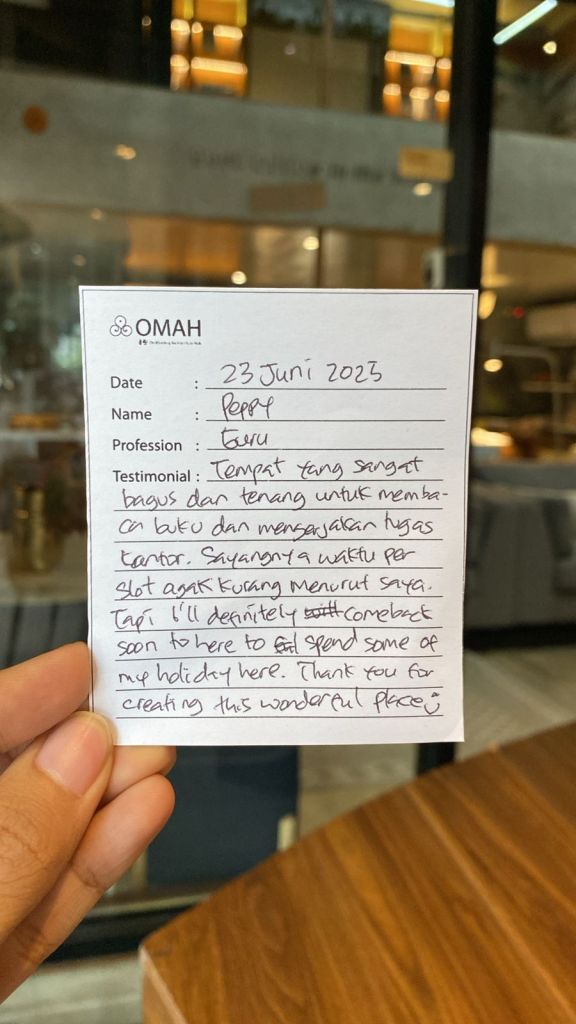 OMAH
Date : 23 Juni 2025
Name : Peppy
Profession : Guru
Testimonial : Tempat yang sangat
bagus dan tenang untuk memba-
ca buku dan mengerjakan tugas
kantor. Sayangnya waktu per
slot agak kurang menurut saya.
Tapi I'll definitely comeback
soon to here to spend some of
my holiday here. Thank you for
creating this wonderful place